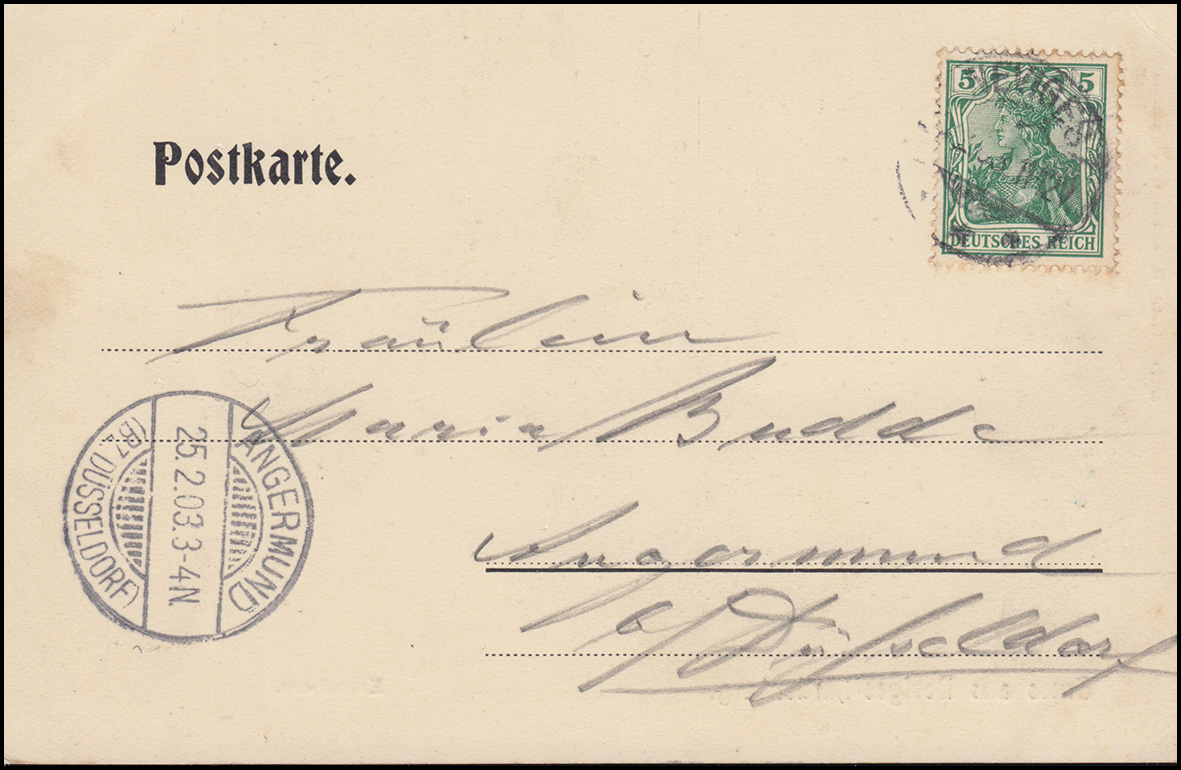 5 5
DEUTSCHES REICH
Postkarte.
Fräulein
Maria Budde
Angermund
b/ Düsseldorf
ANGERMUND
25.2.03.3-4N.
(BZ. DÜSSELDORF)